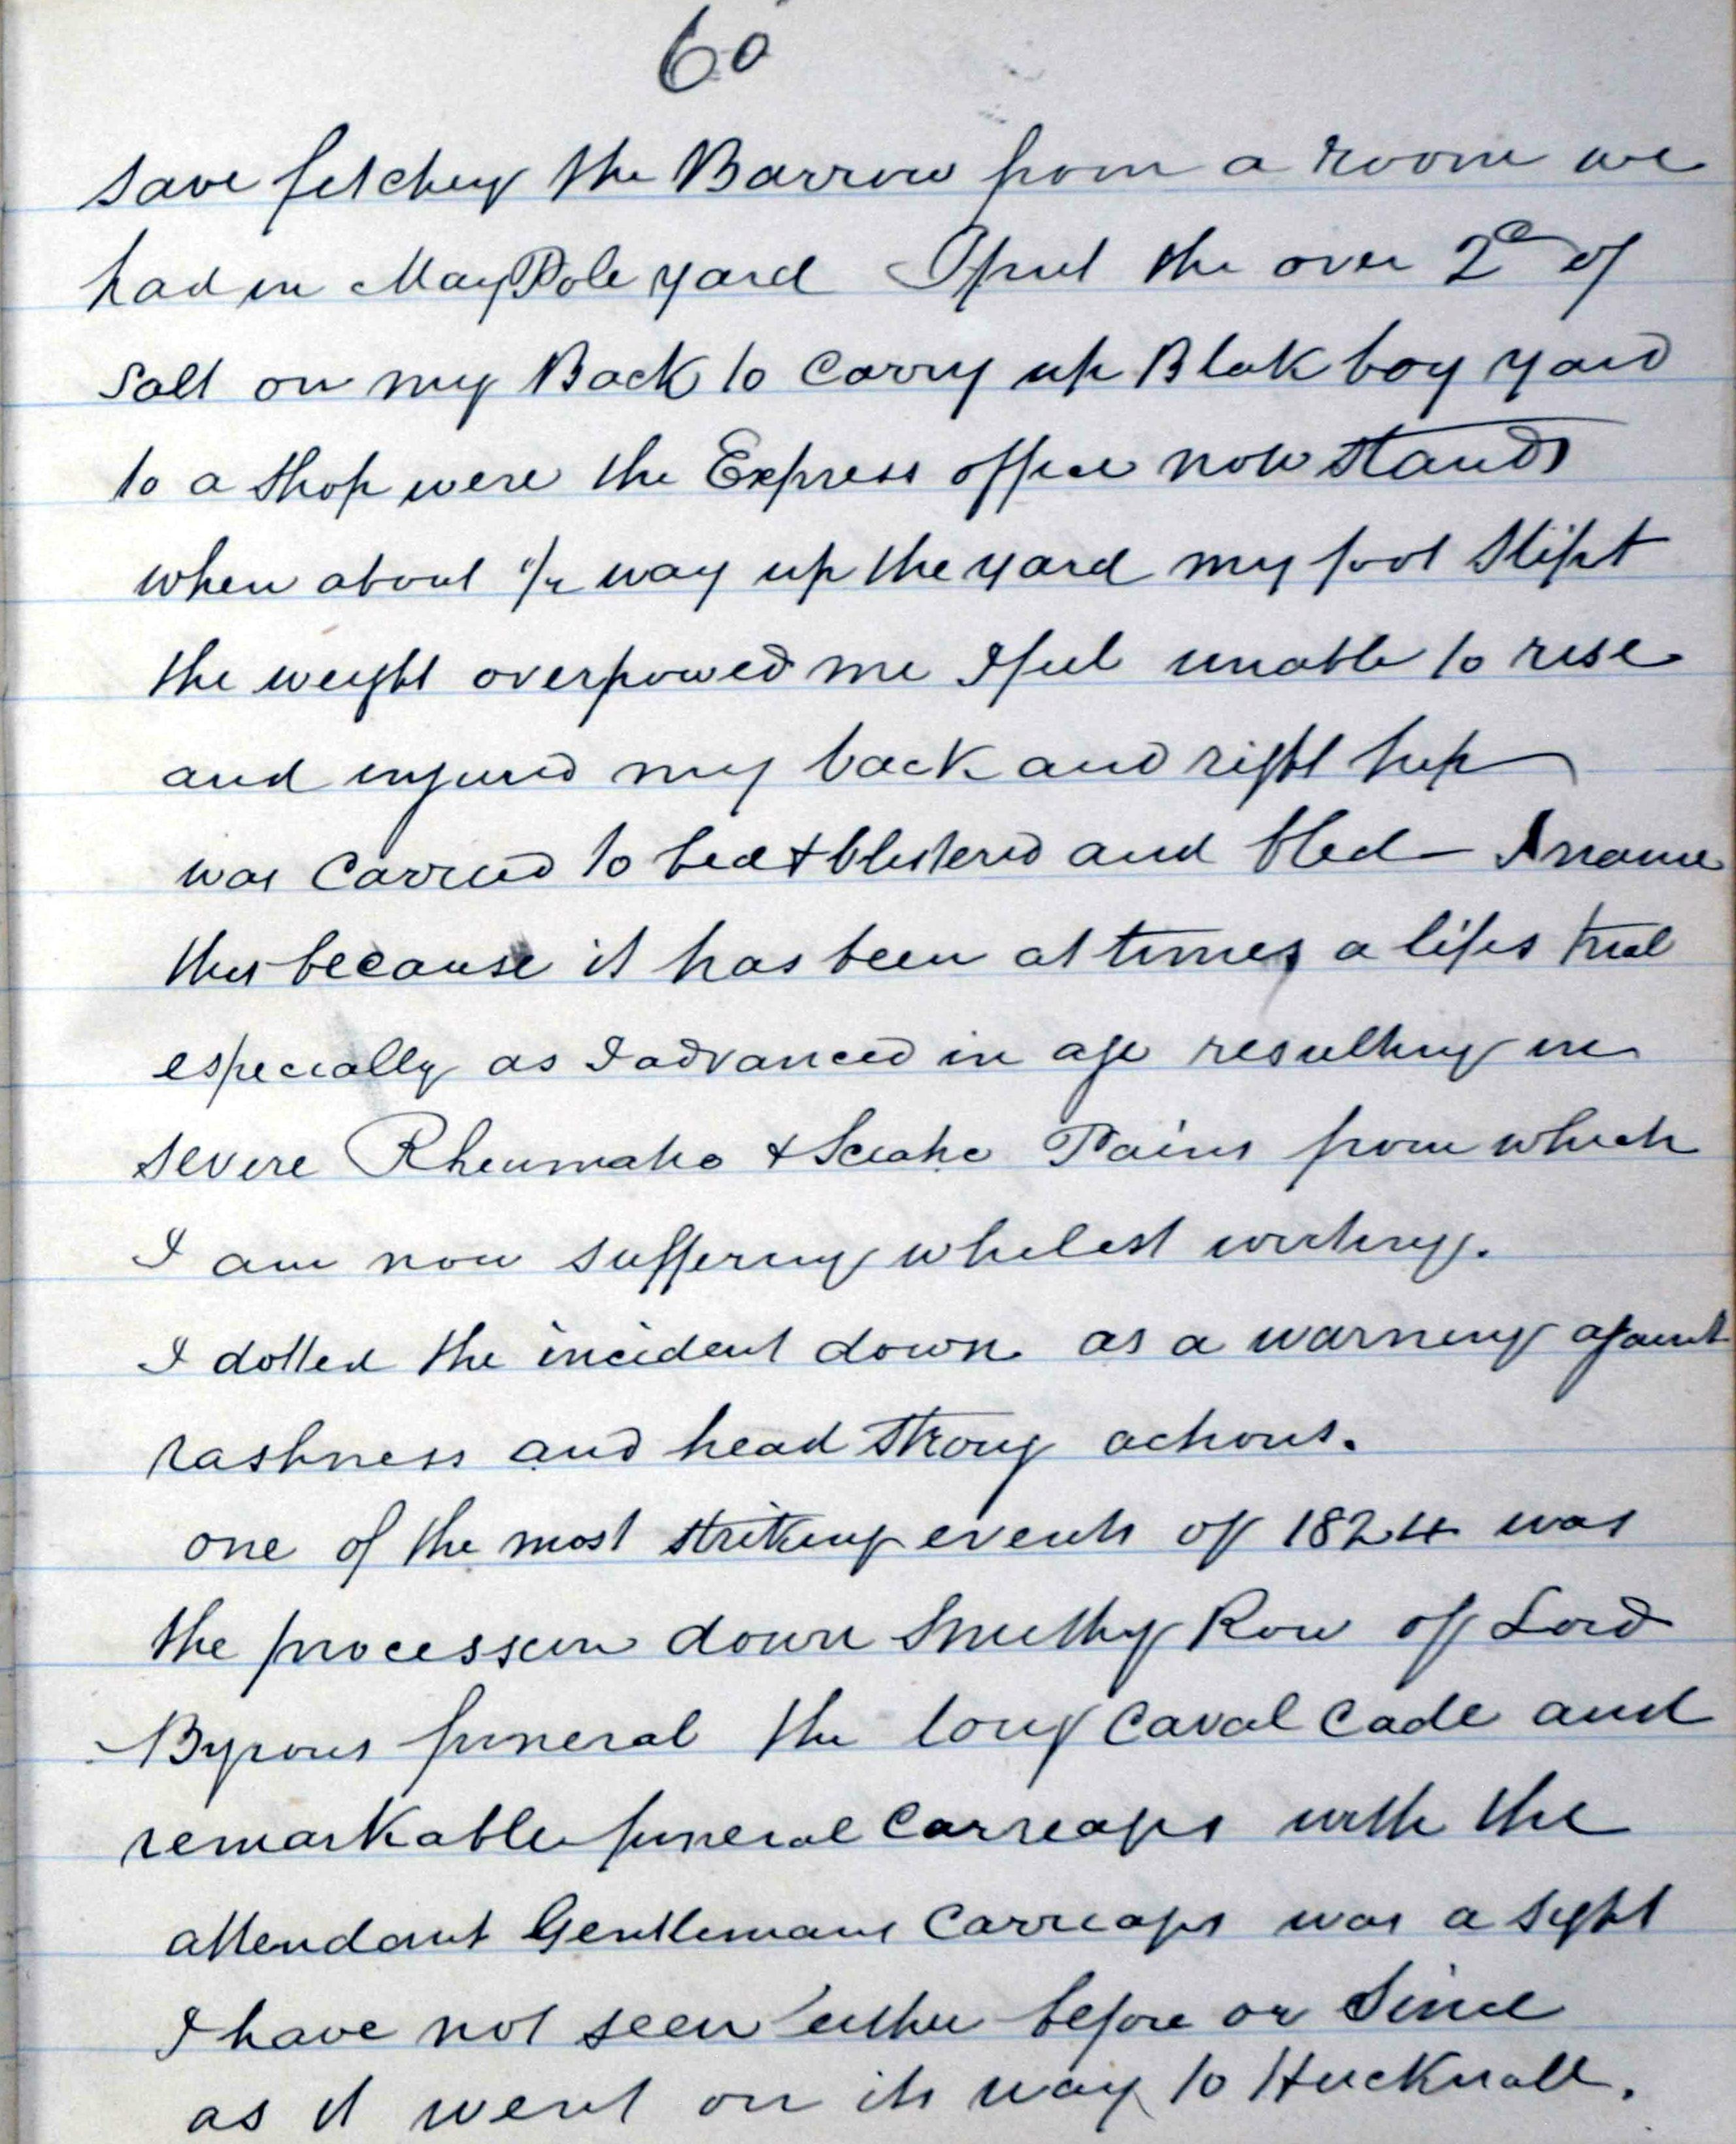 60
save fetching the Barrow from a room we
had in MayPole yard I put the over 2c of
salt on my Back to Carry up Blak boy yard
to a shop were the Express office now stands
when about 1/2 way up the yard my foot slipt
the weight overpowed me I feel unable to rise
and injured my back and right hip
was Carried to bed + blistered and bled - I name
this because it has been at times a lifes trial
especially as I advanced in age resulting in
severe Rheumatic + Sciatic Pains from which
I am now suffering whilest writing.
I dotted the incident down as a warning against
rashness and head strong actions.
one of the most striking events of 1824 was
the procession down Smithy Row of Lord
Byrons funeral the long Caval Cade and
remarkable funeral Carreages with the
attendant Gentlemans Carriages was a sight
I have not seen either before or Since
as it went on its way to Hucknall.